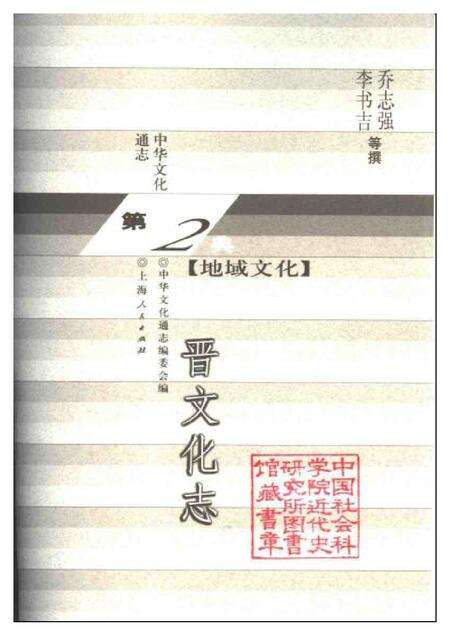 乔志强
李书吉
等撰
中华文化
通志
第2典
【地域文化】
◎中华文化通志编委会编
◎上海人民出版社
晋文化志
中国社会科
学院近代史
研究所图书
馆藏书章